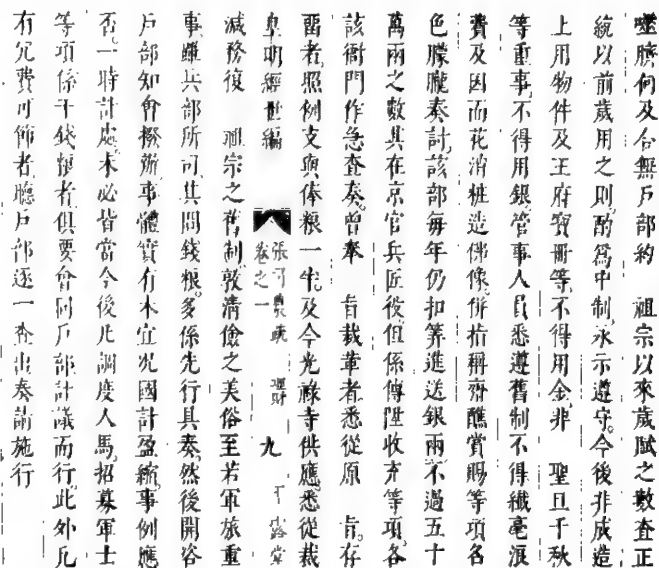 噬臍何及合無戶部約 祖宗以來歲賦之數查正
統以前歲用之則酌爲中制永示遵守今後非成造
上用物件及王府寶冊等不得用金非 聖旦千秋
等重事不得用銀管事人員悉遵舊制不得纖毫浪
費及因而花消粧造佛像併指稱齋醮賞賜等項名
色朦朧奏討該部每年仍扣筭進送銀兩不過五十
萬兩之數其在京官兵匠役但係傳陞收充等項各
該衙門作急查奏曾奉 旨裁革者悉從原 旨存
畱者照例支與俸粮一半及今光祿寺供應悉從裁
皇明經世編 卷之一 理財 九 平露堂
減務復 祖宗之舊制敦清儉之美俗至若軍旅重
事雖兵部所司其間錢粮多係先行具奏然後開咨
戶部知會撥辦事體實有未宜况國計盈縮事例應
否一時計處未必皆當今後凡調度人馬招募軍士
等項係干錢粮者俱要會同戶部計議而行此外凡
有冗費可節者聽戶部逐一查出奏請施行